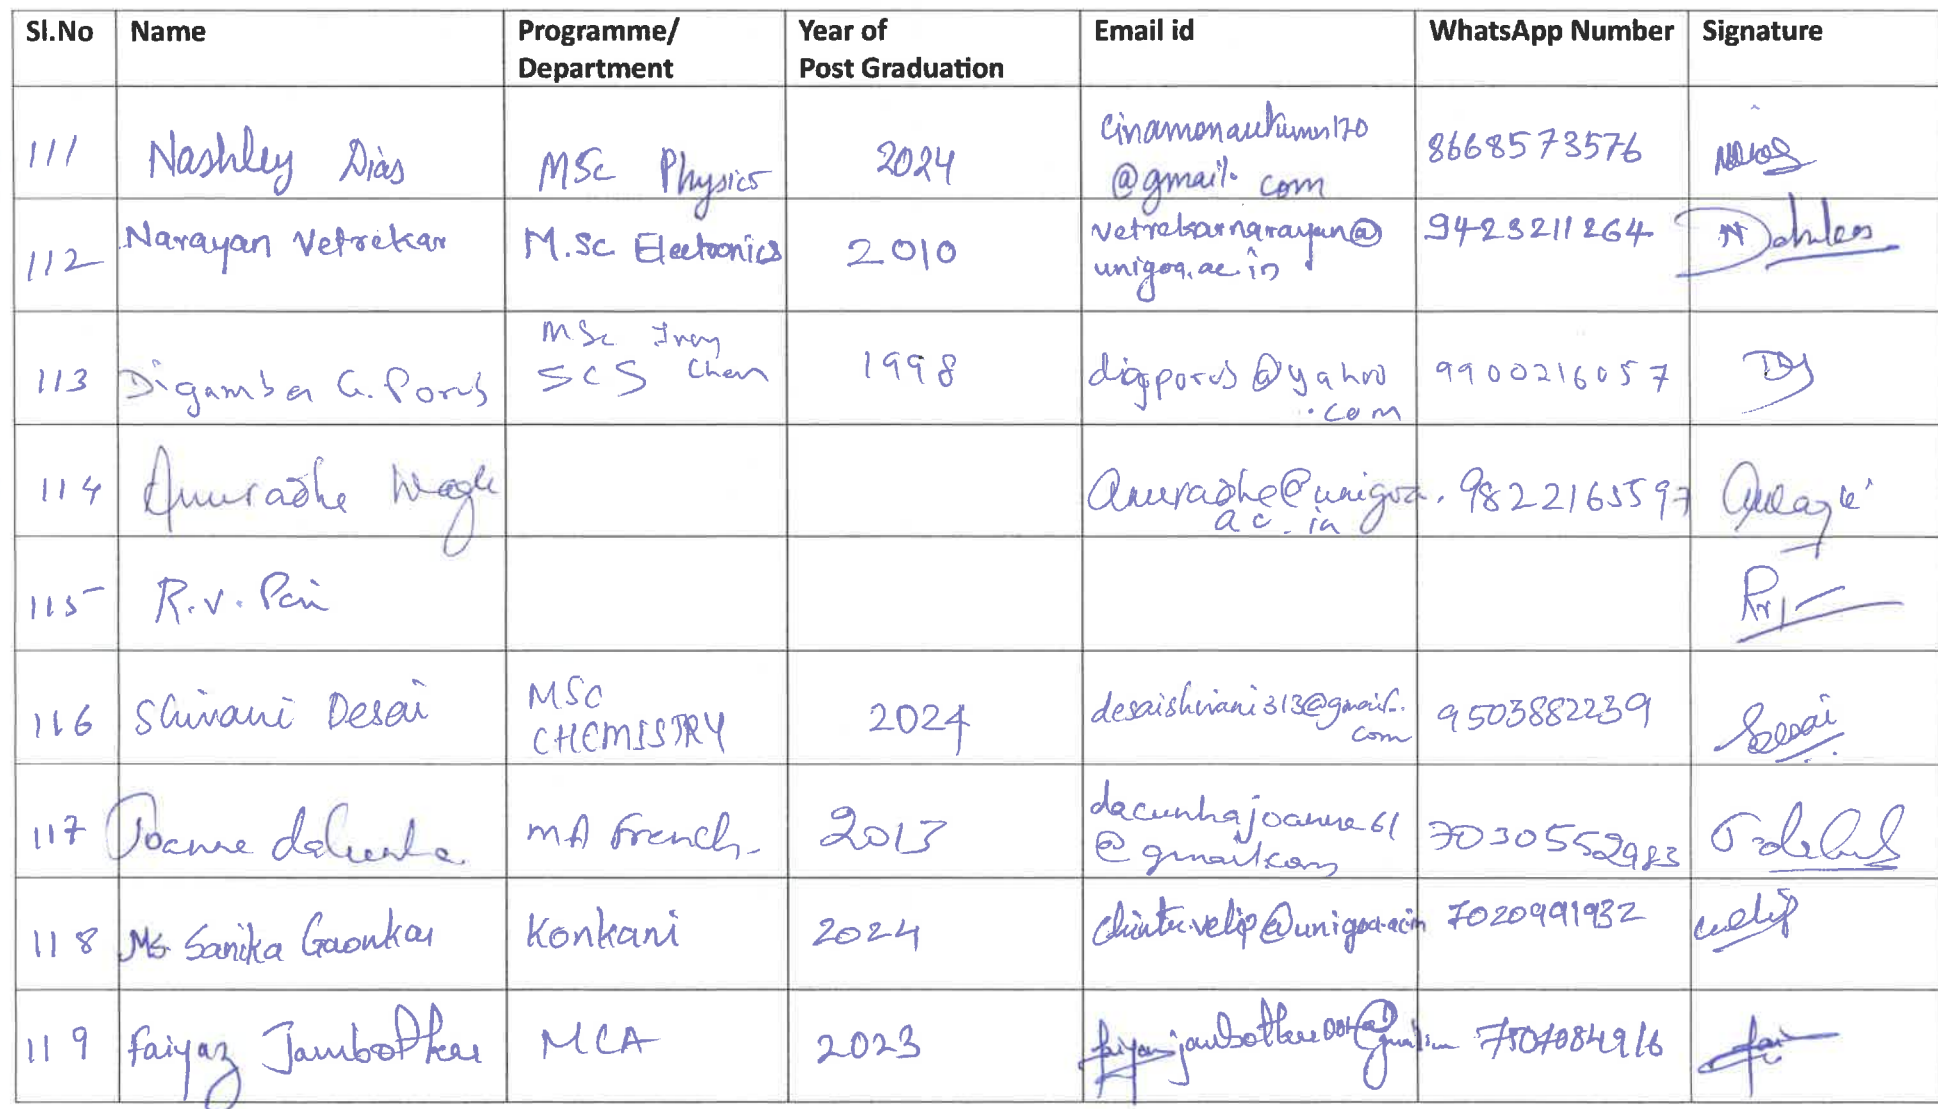 Sl.No Name Programme/ Department Year of Post Graduation Email id WhatsApp Number Signature
111 Nashley Dias MSc Physics 2024 cinamonautumn170 @gmail.com 8668573576
112 Narayan Vetrekar M.Sc Electronics 2010 vetrekarnarayan@ unigoa.ac.in 9423211264
113 Digamber G. Porob MSc Inorg Chem SCS 1998 digporob@yahoo .com 9900216057
114 Anuradha Wagle anuradha@unigoa. ac.in 9822163597
115 R.V. Pai
116 Shivani Desai MSC CHEMISTRY 2024 desaishivani313@gmail. com 9503882239
117 Joanne daCunha MA French 2013 dacunhajoanne61 @gmail.com 7030552983
118 Ms Sanika Gaonkar Konkani 2024 chintu.velip@unigoa.ac.in 7020991932
119 Faiyaz Jambotkar MCA 2023